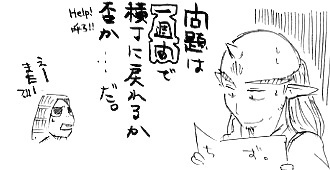 問題は
一週間で
横丁に戻れるか
否か……だ。
Help!
えー
まだでい!
ちず。